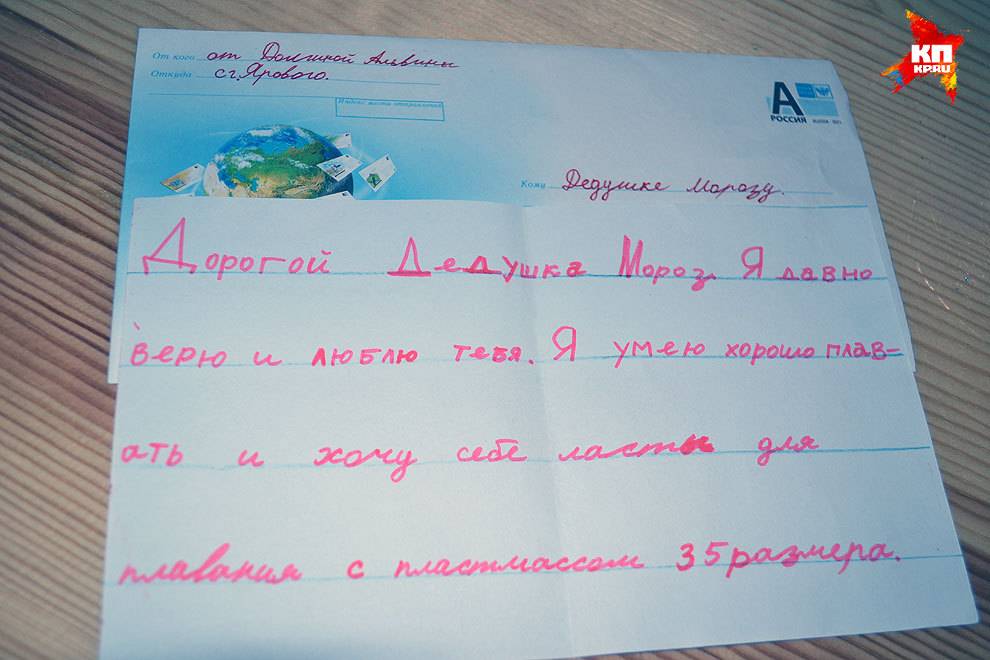 КП
KP.RU
От кого от Долгиной Альвины
Откуда с г. Ярового.
Индекс места отправления
А
РОССИЯ
Кому Дедушке Морозу.
Дорогой Дедушка Мороз. Я давно
верю и люблю тебя. Я умею хорошо плав-
ать и хочу себе ласты для
плавания с пластмассом 35 размера.